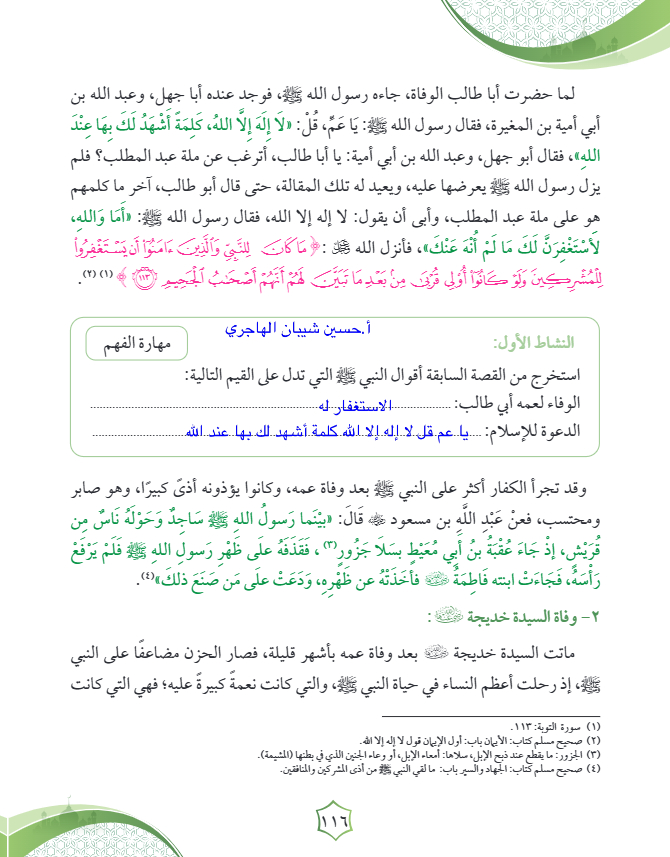 لما حضرت أبا طالب الوفاة، جاءه رسول الله ﷺ، فوجد عنده أبا جهل، وعبد الله بن
أبي أمية بن المغيرة، فقال رسول الله ﷺ: يَا عَمِّ، قُلْ: «لَا إِلَهَ إِلَّا اللهُ، كَلِمَةً أَشْهَدُ لَكَ بِهَا عِنْدَ
اللهِ»، فقال أبو جهل، وعبد الله بن أبي أمية: يا أبا طالب، أترغب عن ملة عبد المطلب؟ فلم
يزل رسول الله ﷺ يعرضها عليه، ويعيد له تلك المقالة، حتى قال أبو طالب، آخر ما كلمهم
هو على ملة عبد المطلب، وأبى أن يقول: لا إله إلا الله، فقال رسول الله ﷺ: «أَمَا وَاللهِ،
لَأَسْتَغْفِرَنَّ لَكَ مَا لَمْ أُنْهَ عَنْكَ»، فأنزل الله ﷻ: ﴿مَا كَانَ لِلنَّبِيِّ وَالَّذِينَ ءَامَنُوٓا۟ أَن يَسْتَغْفِرُوا۟
لِلْمُشْرِكِينَ وَلَوْ كَانُوٓا۟ أُو۟لِى قُرْبَىٰ مِنۢ بَعْدِ مَا تَبَيَّنَ لَهُمْ أَنَّهُمْ أَصْحَٰبُ ٱلْجَحِيمِ ١١٣﴾ (١) (٢).
النشاط الأول:
أ.حسين شيبان الهاجري
مهارة الفهم
استخرج من القصة السابقة أقوال النبي ﷺ التي تدل على القيم التالية:
الوفاء لعمه أبي طالب: الاستغفار له
الدعوة للإسلام: يا عم قل لا إله إلا الله كلمة أشهد لك بها عند الله
وقد تجرأ الكفار أكثر على النبي ﷺ بعد وفاة عمه، وكانوا يؤذونه أذىً كبيرًا، وهو صابر
ومحتسب، فعنْ عَبْدِ اللَّهِ بن مسعود ﵁ قَالَ: «بيْنَما رَسولُ اللهِ ﷺ سَاجِدٌ وَحَوْلَهُ نَاسٌ مِن
قُرَيْشٍ، إذْ جَاءَ عُقْبَةُ بنُ أَبِي مُعَيْطٍ بسَلَا جَزُورٍ(٣)، فَقَذَفَهُ علَى ظَهْرِ رَسولِ اللهِ ﷺ فَلَمْ يَرْفَعْ
رَأْسَهُ، فَجَاءَتْ ابنته فَاطِمَةُ ﵂ فأخَذَتْهُ عن ظَهْرِهِ، وَدَعَتْ علَى مَن صَنَعَ ذلكَ»(٤).
٢- وفاة السيدة خديجة ﵂ :
ماتت السيدة خديجة ﵂ بعد وفاة عمه بأشهر قليلة، فصار الحزن مضاعفًا على النبي
ﷺ، إذ رحلت أعظم النساء في حياة النبي ﷺ، والتي كانت نعمةً كبيرةً عليه؛ فهي التي كانت
(١) سورة التوبة: ١١٣.
(٢) صحيح مسلم كتاب: الأيمان باب: أول الإيمان قول لا إله إلا الله.
(٣) الجزور: ما يقطع عند ذبح الإبل، سلاها: أمعاء الإبل، أو وعاء الجنين الذي في بطنها (المشيمة).
(٤) صحيح مسلم كتاب: الجهاد والسير باب: ما لقي النبي ﷺ من أذى المشركين والمنافقين.
١١٦